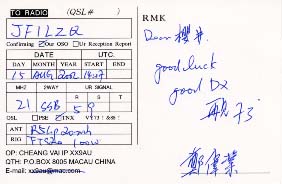 TO RADIO (QSL# )
JF1LZQ
Confirming ☑Our QSO ☐Ur Reception Report
DATE UTC.
DAY MONTH YEAR START END
15 AUG 2002 14:17
MHZ 2WAY UR SIGNALS
R S T
21 SSB 5 9
QSL ☐PSE ☑TNX VY73 !
ANT
RIG 100W
OP: CHEANG VAI IP XX9AU
QTH: P.O.BOX 6005 MACAU CHINA
E-mail: xx9au@mac.com
RMK
Dear 櫻井.
good luck
good DX
鄭偉業